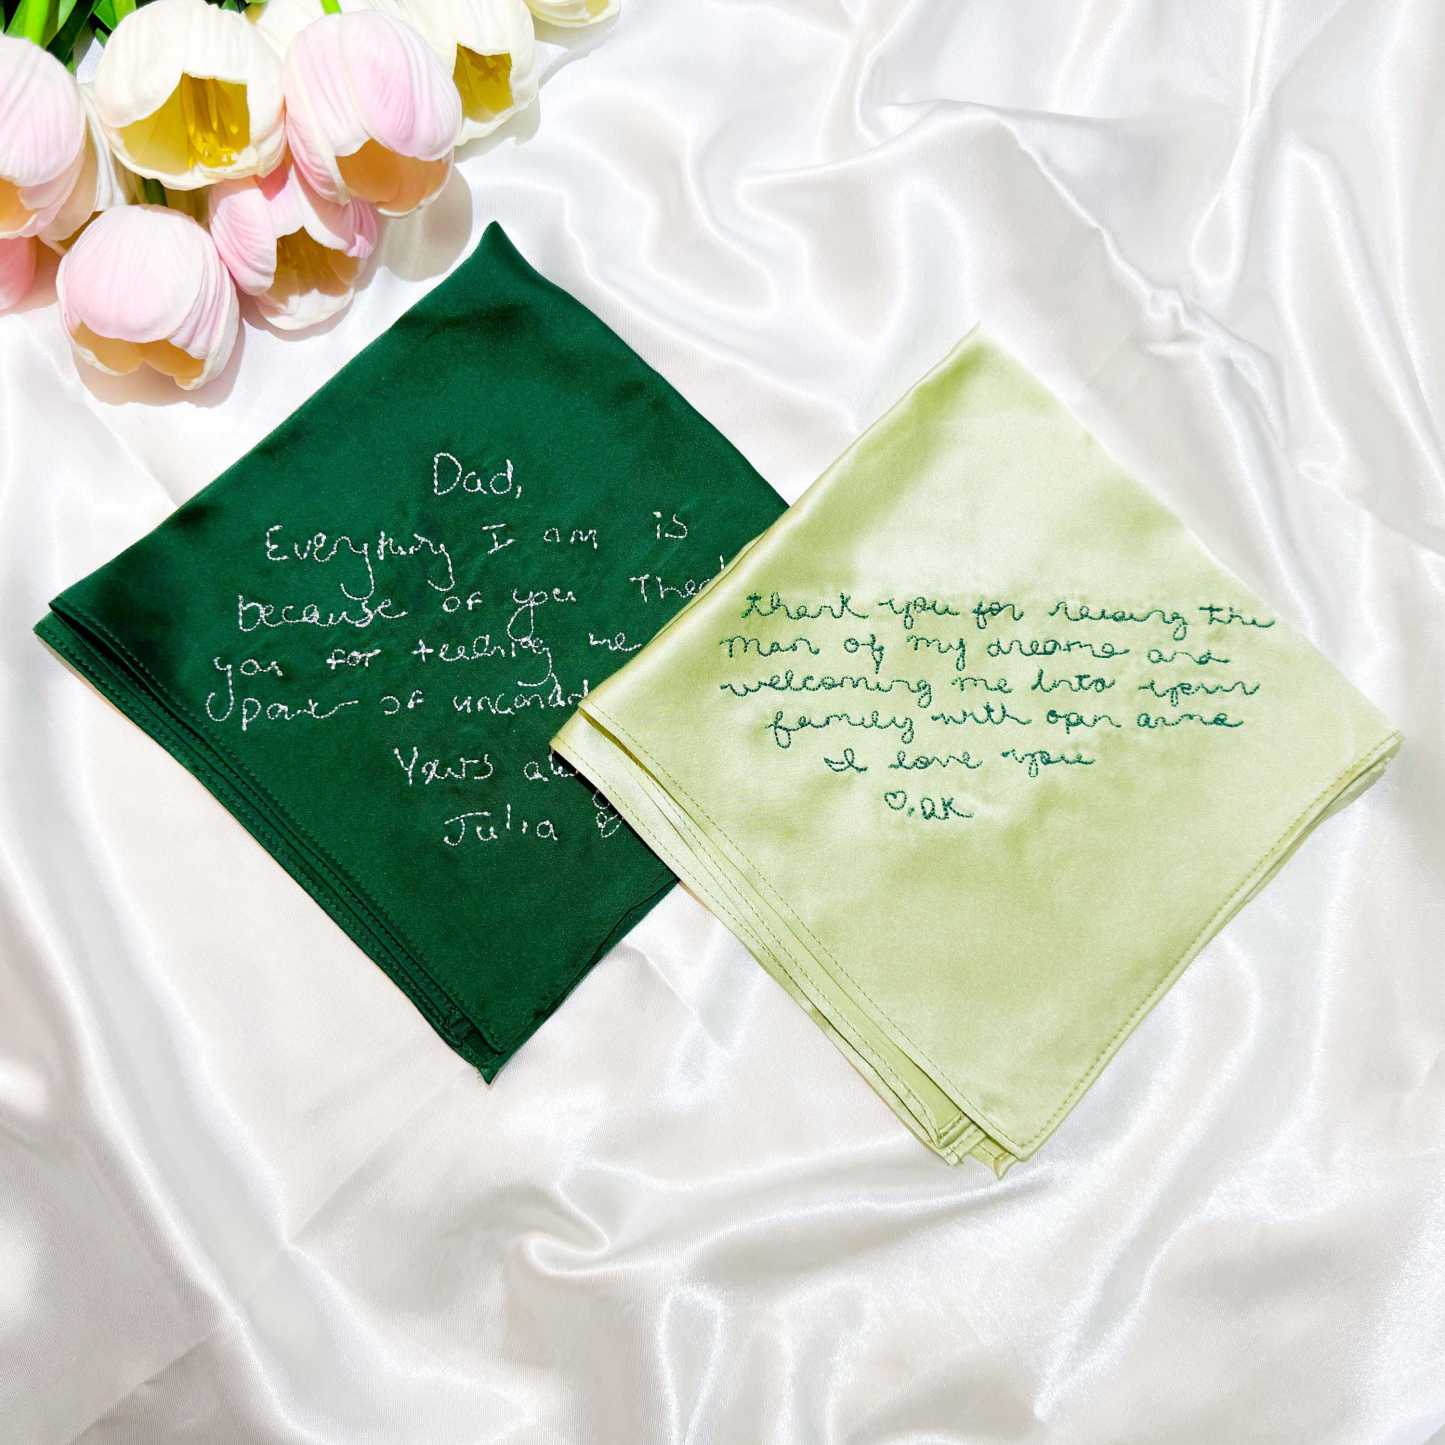 Dad,
Everything I am is
because of you Thank
you for teaching me
power of uncondi
Yours al
Julia
thank you for raising the
man of my dreams and
welcoming me into your
family with open arms
I love you
♡, DK